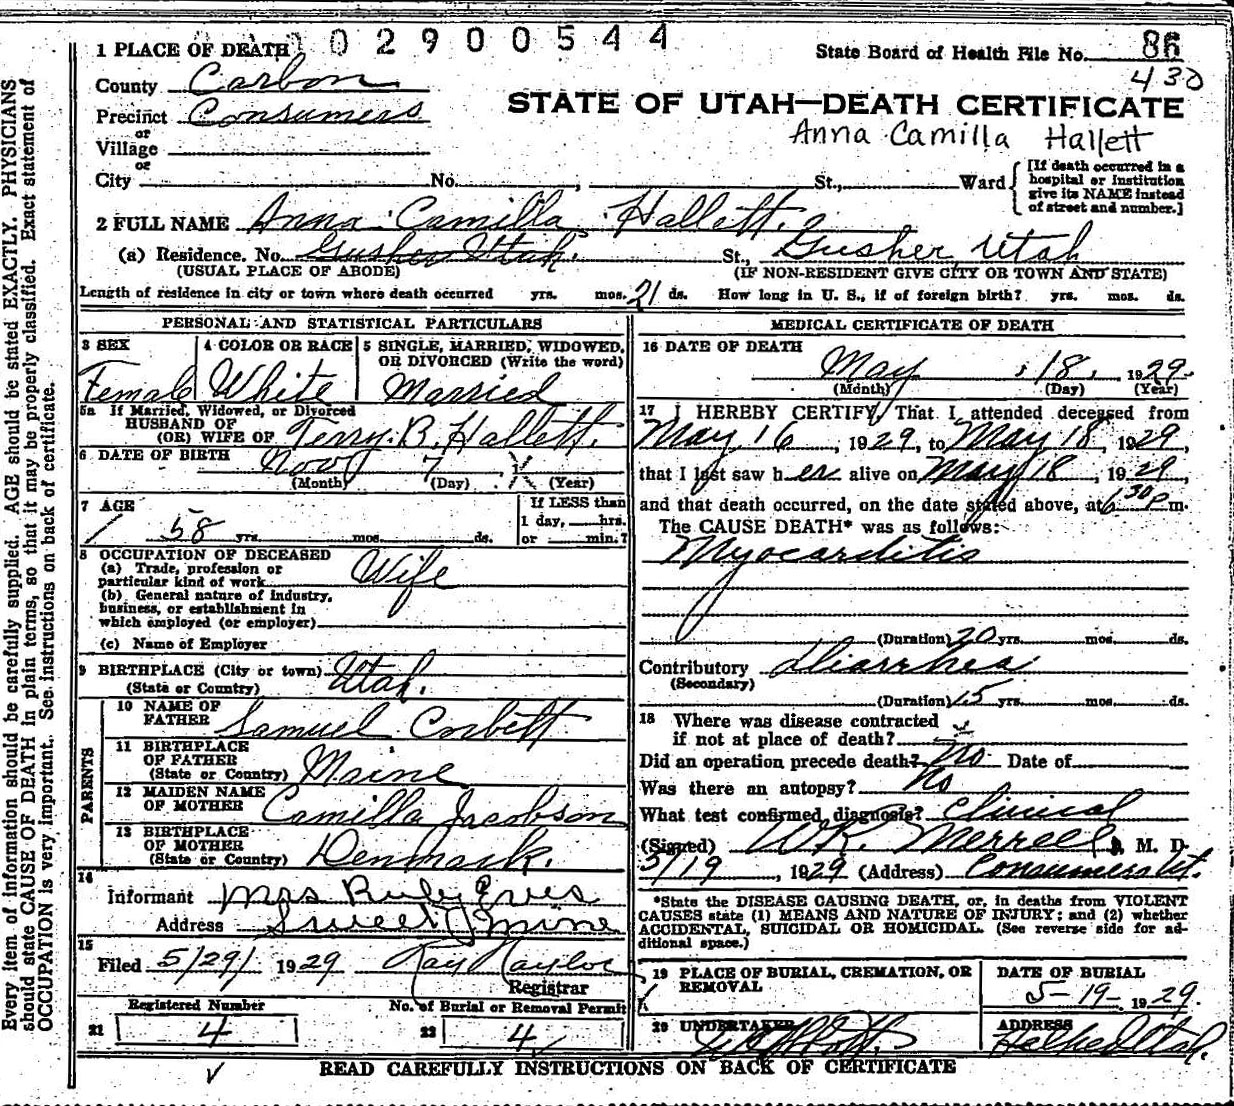 0 2 9 0 0 5 4 4
1 PLACE OF DEATH
State Board of Health File No. 86
430
County Carbon
STATE OF UTAH—DEATH CERTIFICATE
Precinct Consumers
or
Village
Anna Camilla Hallett
or
City No. , St., Ward
[If death occurred in a
hospital or institution
give its NAME instead
of street and number.]
2 FULL NAME Anna Camilla Hallett.
(a) Residence. No. Gusher Utah. St., Gusher, Utah
(USUAL PLACE OF ABODE) (IF NON-RESIDENT GIVE CITY OR TOWN AND STATE)
Length of residence in city or town where death occurred yrs. mos. 21 ds. How long in U. S., if of foreign birth? yrs. mos. ds.
PERSONAL AND STATISTICAL PARTICULARS
3 SEX 4 COLOR OR RACE 5 SINGLE, MARRIED, WIDOWED,
OR DIVORCED (Write the word)
Female White Married
5a If Married, Widowed, or Divorced
HUSBAND OF
(OR) WIFE OF Terry. B. Hallett.
6 DATE OF BIRTH Nov 7
(Month) (Day) (Year)
7 AGE If LESS than
58 yrs. mos. ds. 1 day, hrs.
or min.?
8 OCCUPATION OF DECEASED
(a) Trade, profession or
particular kind of work Wife
(b) General nature of industry,
business, or establishment in
which employed (or employer)
(c) Name of Employer
9 BIRTHPLACE (City or town) Utah.
(State or Country)
PARENTS
10 NAME OF
FATHER Samuel Corbett
11 BIRTHPLACE
OF FATHER
(State or Country) Maine
12 MAIDEN NAME
OF MOTHER Camilla Jacobson
13 BIRTHPLACE
OF MOTHER
(State or Country) Denmark.
14
Informant Mrs Ruby
Address Sweet Mine
15
Filed 5/29/ 1929 Ray Naylor
Registrar
Registered Number No. of Burial or Removal Permit
21 4 22 4
MEDICAL CERTIFICATE OF DEATH
16 DATE OF DEATH
May 18, 1929.
(Month) (Day) (Year)
17 I HEREBY CERTIFY, That I attended deceased from
May 16, 1929, to May 18, 1929,
that I last saw her alive on May 18, 1929,
and that death occurred, on the date stated above, at 6 30 p m.
The CAUSE DEATH* was as follows:
Myocarditis
(Duration) 20 yrs. mos. ds.
Contributory Diarrhea
(Secondary)
(Duration) 15 yrs. mos. ds.
18 Where was disease contracted
if not at place of death?
Did an operation precede death? No Date of
Was there an autopsy? No
What test confirmed diagnosis? Clinical
(Signed) W.R. Merrell, M. D.
5/19, 1929 (Address) Consumers Ut.
*State the DISEASE CAUSING DEATH, or, in deaths from VIOLENT
CAUSES state (1) MEANS AND NATURE OF INJURY; and (2) whether
ACCIDENTAL, SUICIDAL OR HOMICIDAL. (See reverse side for ad-
ditional space.)
19 PLACE OF BURIAL, CREMATION, OR
REMOVAL
DATE OF BURIAL
5-19-1929.
20 UNDERTAKER
ADDRESS
READ CAREFULLY INSTRUCTIONS ON BACK OF CERTIFICATE
Every item of information should be carefully supplied. AGE should be stated EXACTLY. PHYSICIANS
should state CAUSE OF DEATH in plain terms, so that it may be properly classified. Exact statement of
OCCUPATION is very important. See instructions on back of certificate.